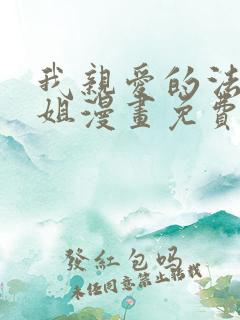 我親愛的法
姐漫畫免費
發紅包吗
未经同意禁止转载